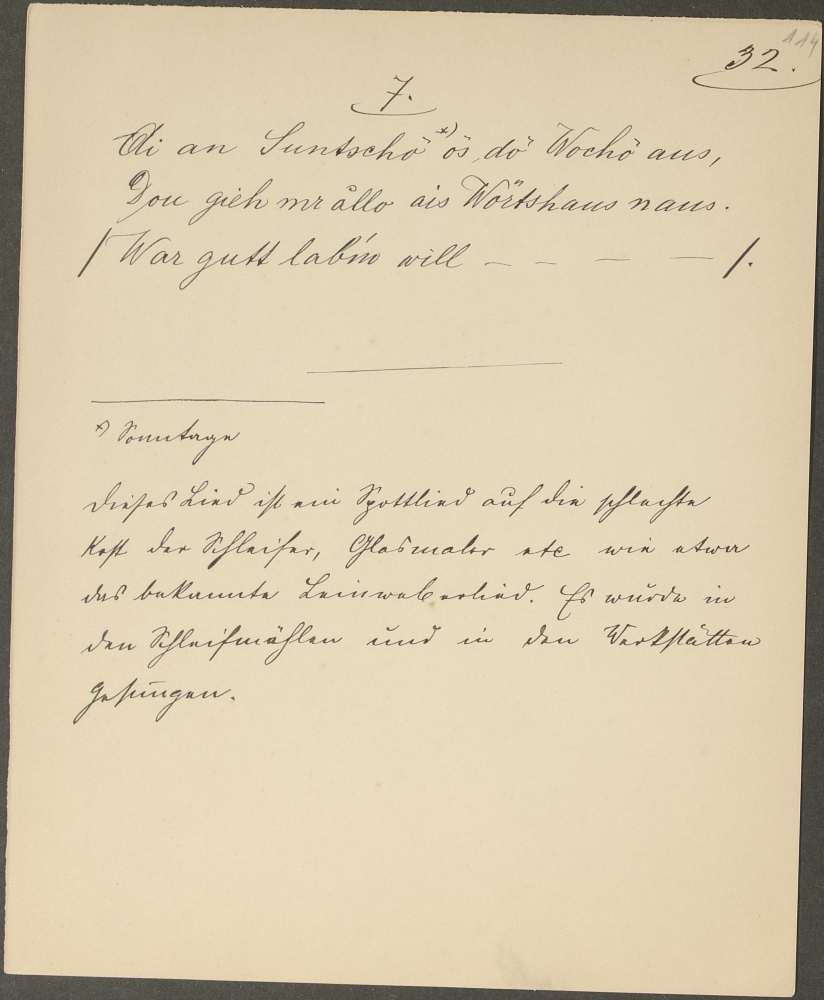 114
32.
7.
Ai an Suntschö *) ös dö Wochö aus,
Dou gieh mr ållo ais Wörtshaus naus.
/ War gutt lab'm will – – – – /.
*) Sonntage
Dieses Lied ist ein Spottlied auf die schlechte
Kost der Schleifer, Glasmaler etc wie etwa
das bekannte Leinweberlied. Es wurde in
den Schleifmühlen und in den Werkstätten
gesungen.